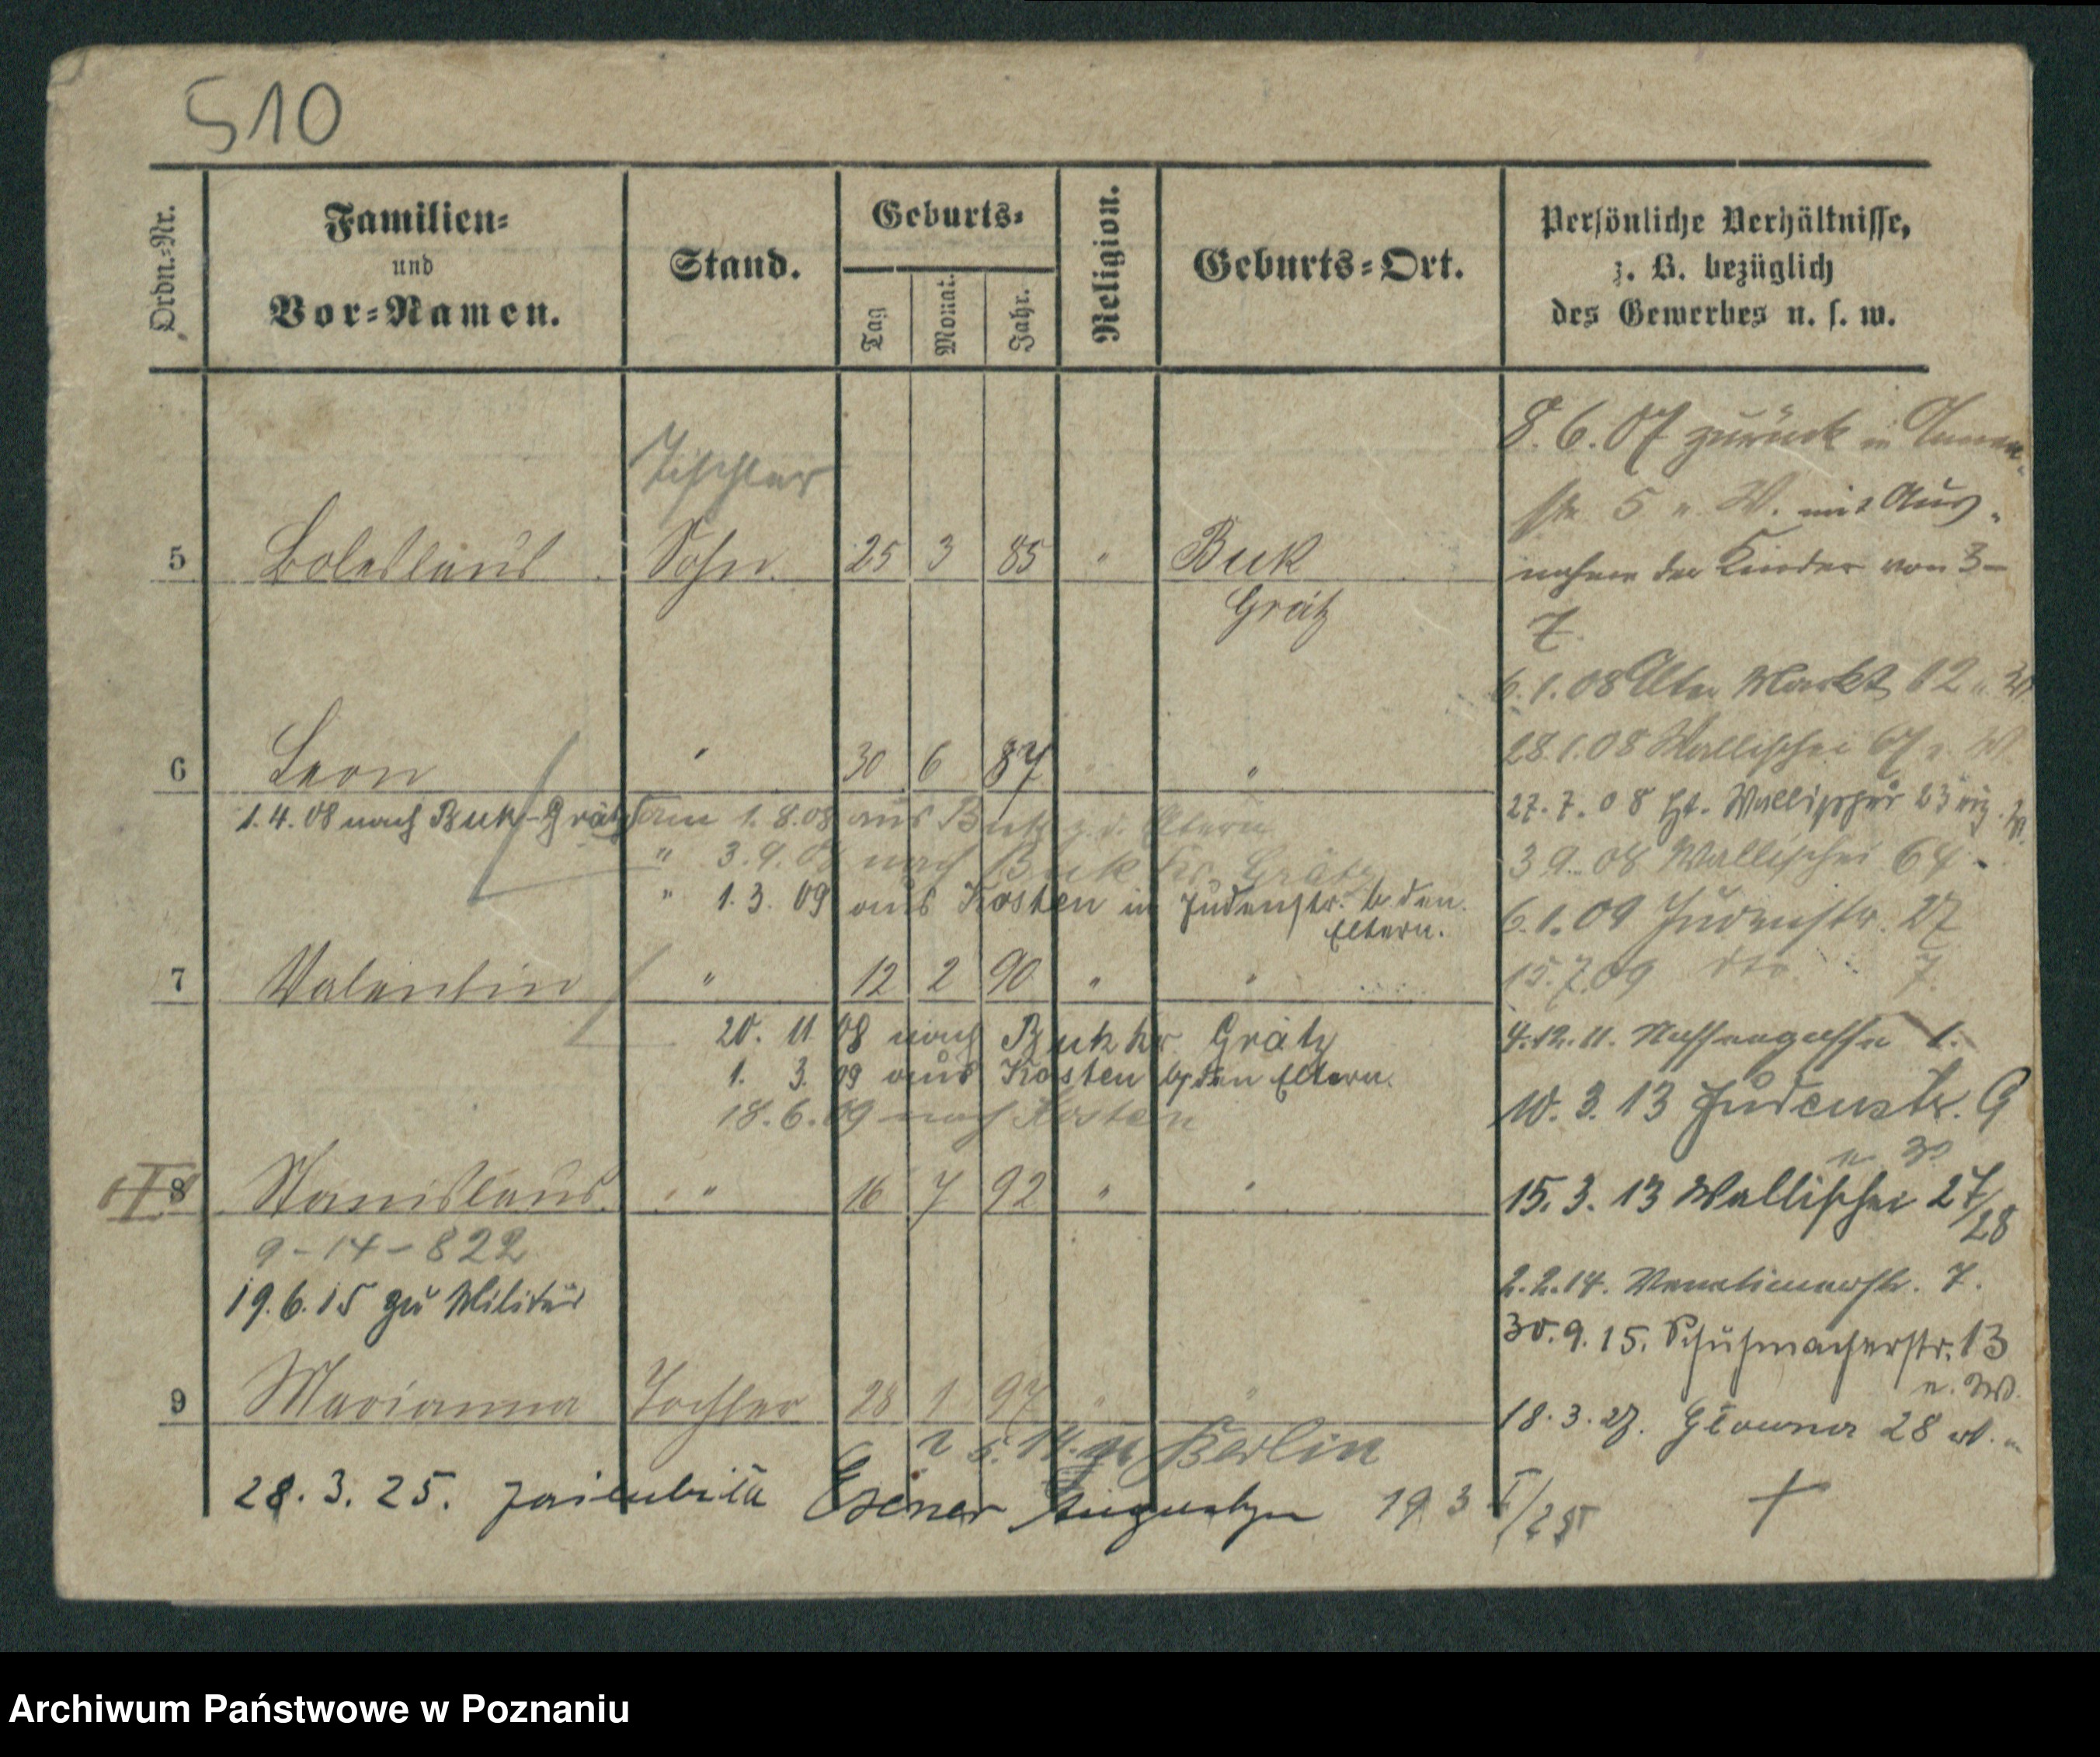 510
Ordn.-Nr.
Familien-
und
Vor-Namen.
Stand.
Geburts-
Tag
Monat.
Jahr.
Religion.
Geburts-Ort.
Persönliche Verhältnisse,
z. B. bezüglich
des Gewerbes u. s. w.
Tischler
5 Boleslaus Sohn 25 3 85 " Buk
Grätz
6 Leon " 30 6 87 "
1.4.08 nach Buk-Grätz am 1.8.08 aus Buk z. d. Eltern
" 3.9.08 nach Buk Kr. Grätz
" 1.3.09 aus Kosten in Judenstr. b. den
Eltern.
7 Valentin " 12 2 90 " "
20. 11 08 nach Buk Kr Grätz
1. 3. 09 aus Kosten b. den Eltern.
18.6.09 nach Kosten
8 Stanislaus " 16 7 92 " "
9-14-822
19.6.15 zu Militär
9 Marianna Tochter 28 1 97 " "
5. 14. Berlin
28.3.25. 193
8.6.07 zurück in
5 u. W. mit Aus-
nahme der Kinder von 3-
7.
6.1.08 Alter Markt 62 u. W
28.1.08 Wallischei 67 u. W.
27.7.08 Wallischei 23
3 9.08 Wallischei 64
6.1.09 Judenstr. 27
15.7.09 dto. 7.
4.12.11. Nassengasse 1.
10.3.13 Judenstr. 9
15.3.13 Wallischei 27/28
2.2.14. Venetianerstr. 7.
30.9.15. Schuhmacherstr. 13
u. W.
18.3.27. Główna 28
+
Archiwum Państwowe w Poznaniu